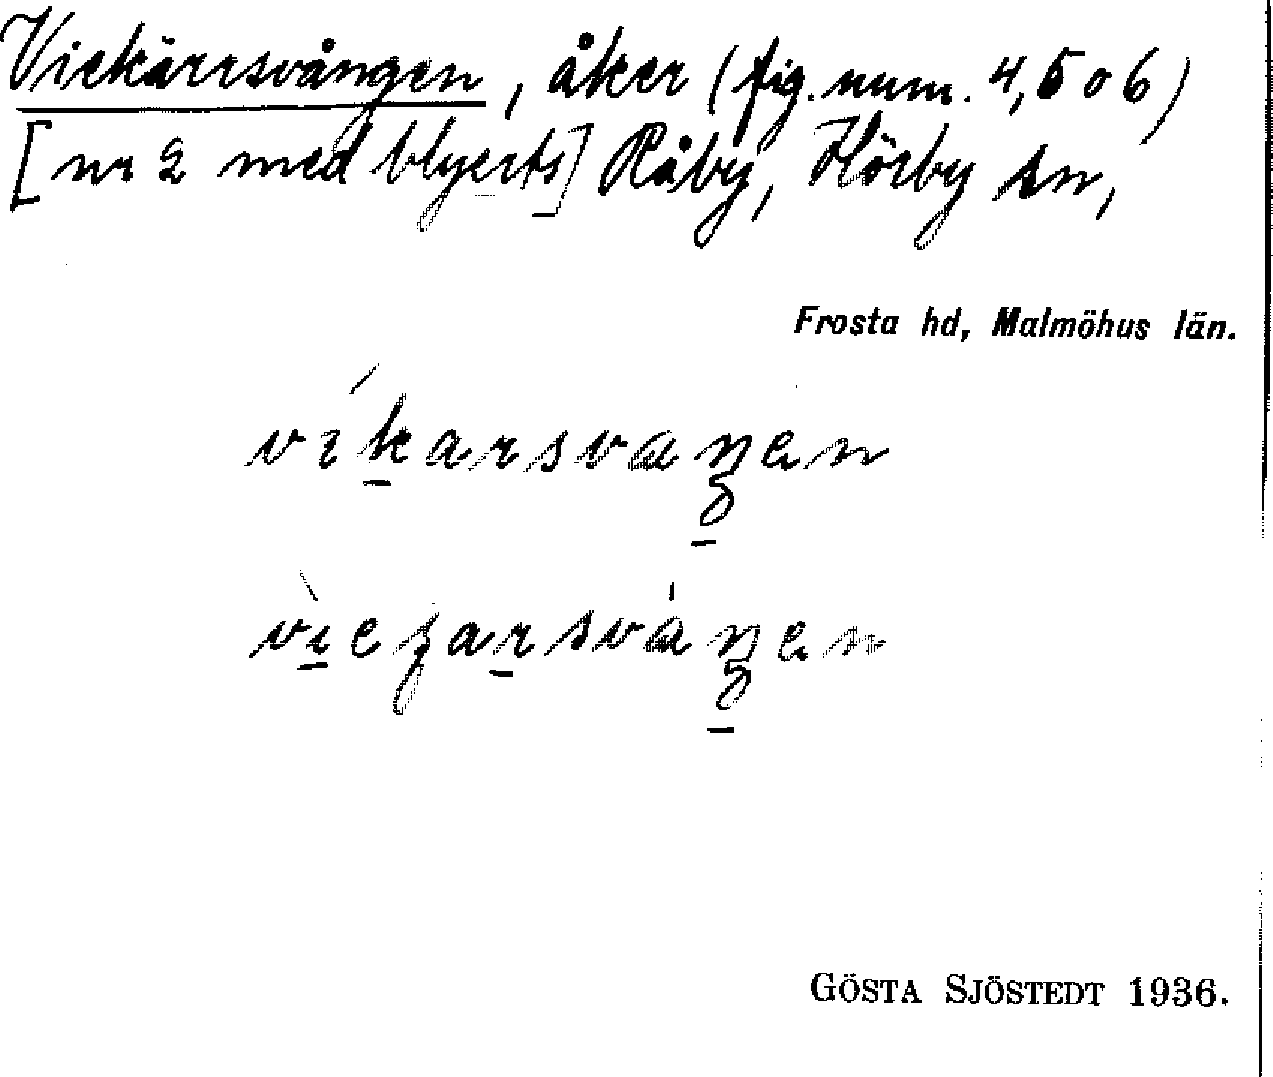 Viekärrsvången, åker (fig. num. 4, 5 o 6)
[nr 2 med blyerts] Råby, Hörby sn,
Frosta hd, Malmöhus län.
GÖSTA SJÖSTEDT 1936.